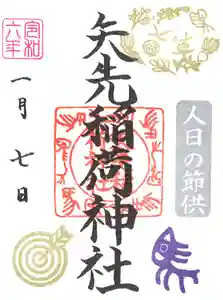 矢先稲荷神社
人日の節供
令和六年
一月七日